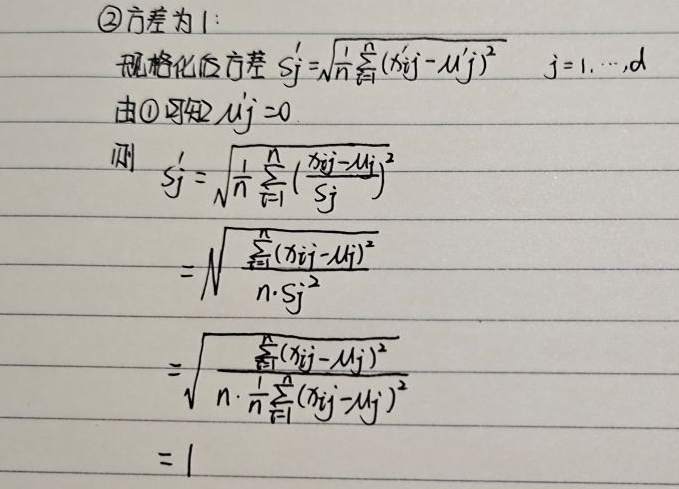 ②方差为1:
规格化后方差 sj' = √(1/n ∑_{i=1}^{n} (x'ij - μ'j)²)   j = 1, ⋯, d
由①可知 μ'j = 0
则 sj' = √(1/n ∑_{i=1}^{n} ((xij - μj)/sj)²)
= √(∑_{i=1}^{n} (xij - μj)² / (n · sj²))
= √(∑_{i=1}^{n} (xij - μj)² / (n · 1/n ∑_{i=1}^{n} (xij - μj)²))
= 1